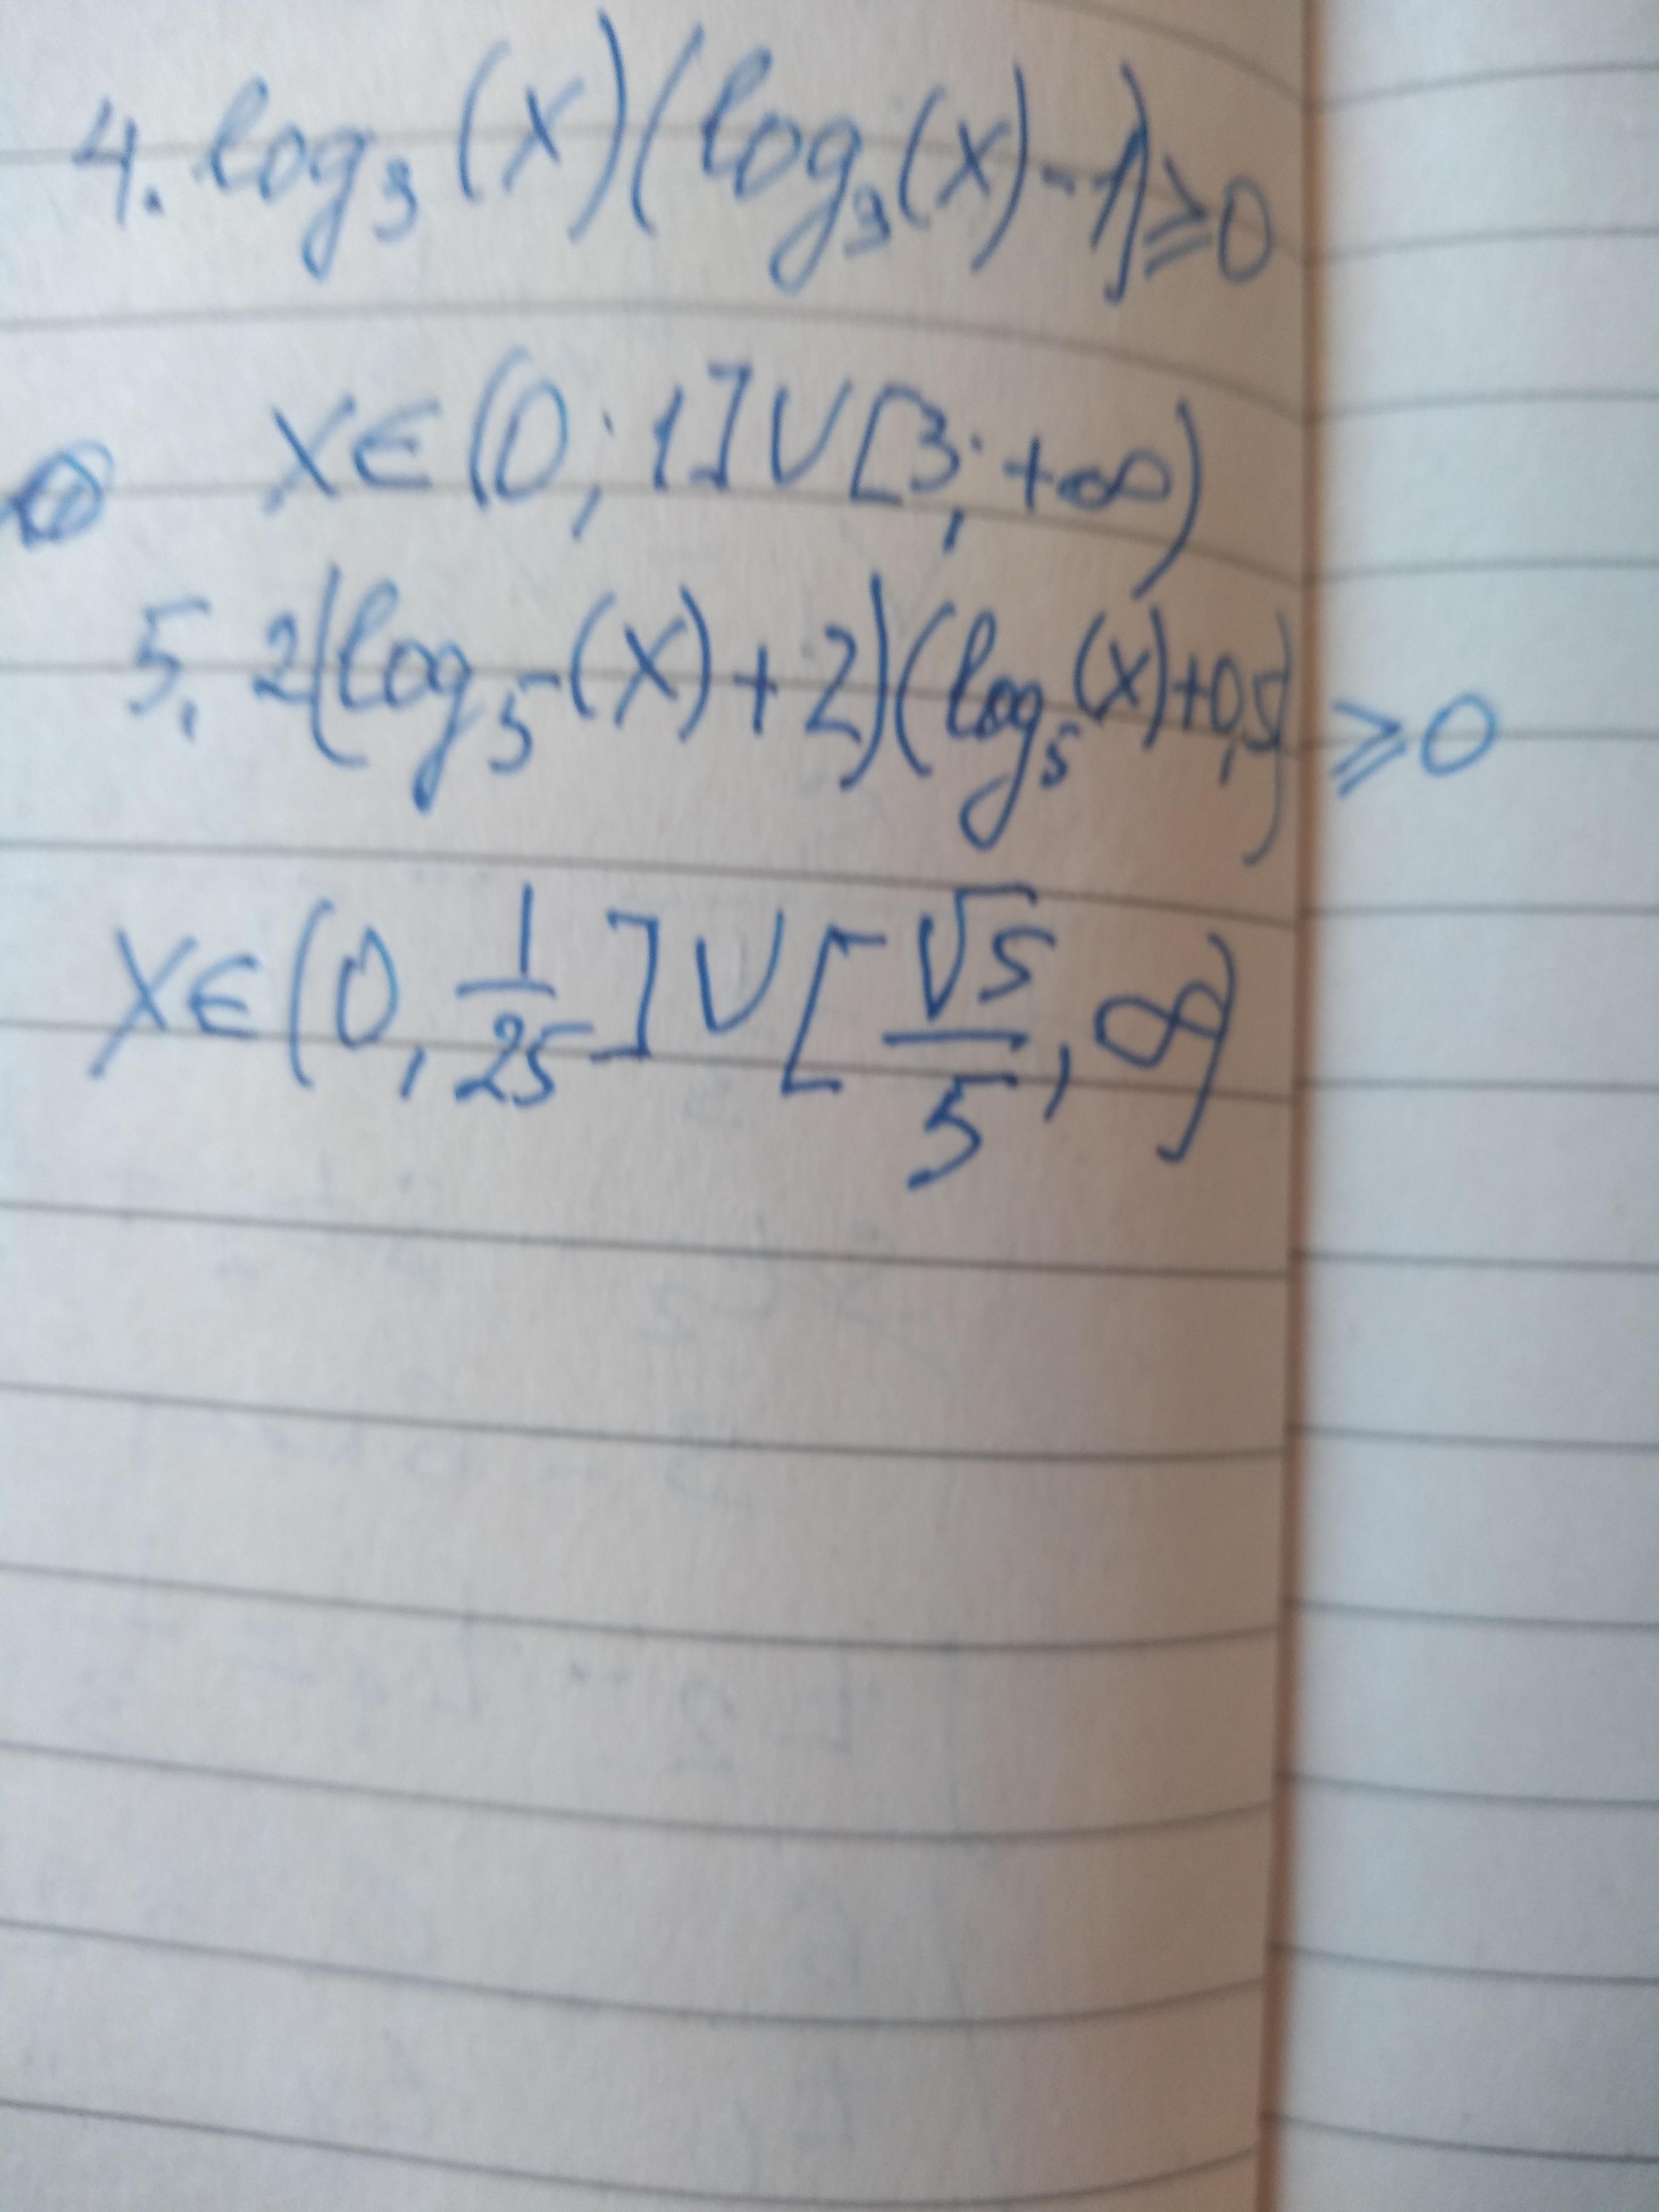 4. log₃(x)(log₃(x)-1)≥0
x∈(0; 1]∪[3; +∞)
5. 2(log₅(x)+2)(log₅(x)+0,5)≥0
x∈(0, 1/25]∪[√5/5, ∞)